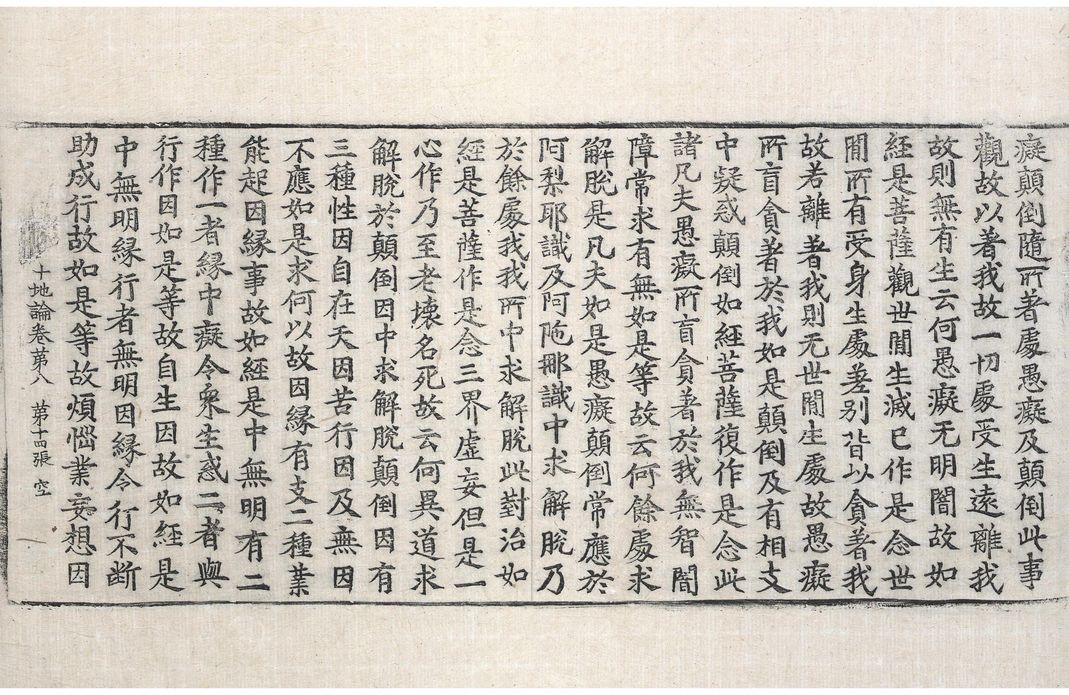 癡顛倒隨所著處愚癡及顛倒此事
觀故以著我故一切處受生遠離我
故則無有生云何愚癡无明闇故如
經是菩薩觀世閒生滅已作是念世
閒所有受身生處差别皆以貪著我
故若離著我則无世閒生處故愚癡
所盲貪著於我如是顛倒及有相支
中疑惑顛倒如經菩薩復作是念此
諸凡夫愚癡所盲貪著於我無智闇
障常求有無如是等故云何餘處求
解脫是凡夫如是愚癡顛倒常應於
阿梨耶識及阿陁那識中求解脫乃
於餘處我我所中求解脫此對治如
經是菩薩作是念三界虛妄但是一
心作乃至老壞名死故云何異道求
解脫於顛倒因中求解脫顛倒因有
三種性因自在天因苦行因及無因
不應如是求何以故因緣有支二種業
能起因緣事故如經是中無明有二
種作一者緣中癡令衆生惑二者與
行作因如是等故自生因故如經是
中無明緣行者無明因緣令行不断
助成行故如是等故煩惱業妄想因
十地論卷第八 第十四張 空